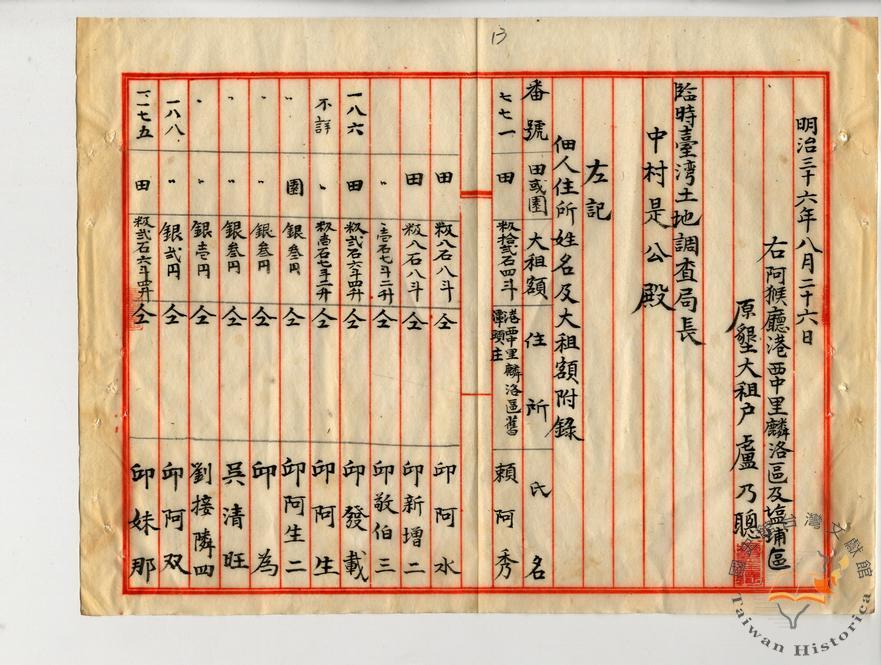 13
明治三十六年八月二十六日
右阿猴廳港西中里麟洛區及塩埔區
原墾大租户盧乃聰
臨時臺湾土地調査局長
中村是公殿
左記
佃人住所姓名及大租額附錄
番號 田或園 大租額 住所 氏名
七七一 田 籾拾弐石四斗 港西中里麟洛區舊潭頭庄 頼阿秀
田 籾八石八斗 仝 邱阿水
田 籾八石八斗 仝 邱新增二
〃 〃壱石七斗二升 仝 邱敬伯三
一八六 田 籾弐石六斗四升 仝 邱發載
不詳 〃 籾壱石七斗二升 仝 邱阿生
〃 園 銀叁円 仝 邱阿生二
〃 〃 銀叁円 仝 邱為
〃 〃 銀叁円 仝 吳清旺
〃 〃 銀壱円 仝 劉接隣四
一八八 〃 銀弐円 仝 邱阿双
一一七五 田 籾弐石六斗四升 仝 邱妹那
文獻館
Taiwan Historica